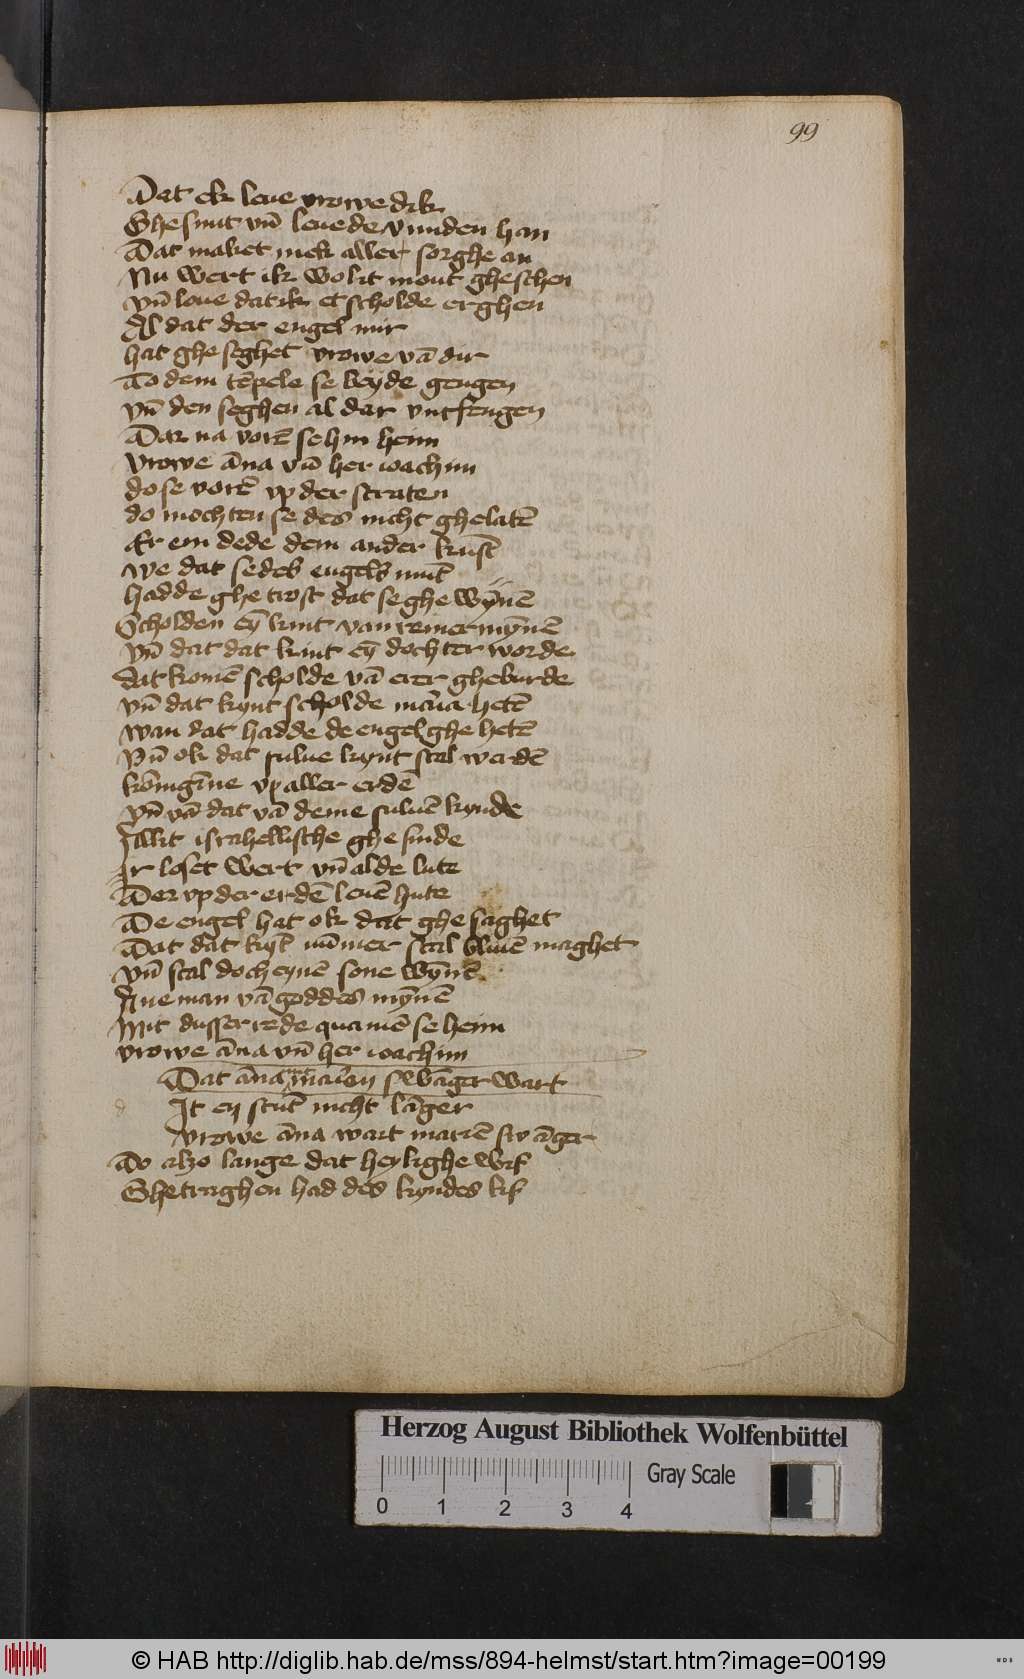 99
Dat ek leue vrowe dik
Ghesunt vn̄ leuede vunden han
Dat maket mek aller sorghe an
Nu wert ik wol it mout gheschen
vn̄ loue dat ik et scholde erghen
Als dat der engel mir
hat ghe seghet vrowe vā dir
Do dem tēpele se beyde gengen
vn̄ den seghen al dar vntfengen
Dar na vorē se hin heim
vrowe āna vn̄ her ioachim
do se vorē vp der straten
do mochten se des nicht ghelatē
Er ein dede dem ander kust
we dat se des engels munt
hadde ghe trost dat se ghe wȳnē
Scholden eȳ kint van reiner mȳnē
vn̄ dat dat kint eȳ dochter worde
dat komē scholde vā erer gheburde
vn̄ dat kynt scholde maria hetē
wan dat hadde de engel ghe hetē
Vn̄ ok dat sulue kynt scal werdē
konīgīne vp aller erdē
vn̄ vā dat vā deme suluē kynde
Allit israhellische ghe sinde
Ir loset wert vn̄ al de lute
Der vp der erdē leuē hute
De engel hat ok dat ghe saghet
Dat dat kȳt nūmer scal bliuē maghet
vn̄ scal doch eynē sone wȳnē
Ane man vā goddes mȳnē
Mit dusser rede quamē se heim
vrowe āna vn̄ her ioachim
Dat āna mariē swāger wart
It en stūt nicht lāger
vrowe āna wart mariē swāger
Do alzo lange dat heylighe wif
Ghetraghen had des kyndes lif
Herzog August Bibliothek Wolfenbüttel
Gray Scale
0 1 2 3 4
© HAB http://diglib.hab.de/mss/894-helmst/start.htm?image=00199